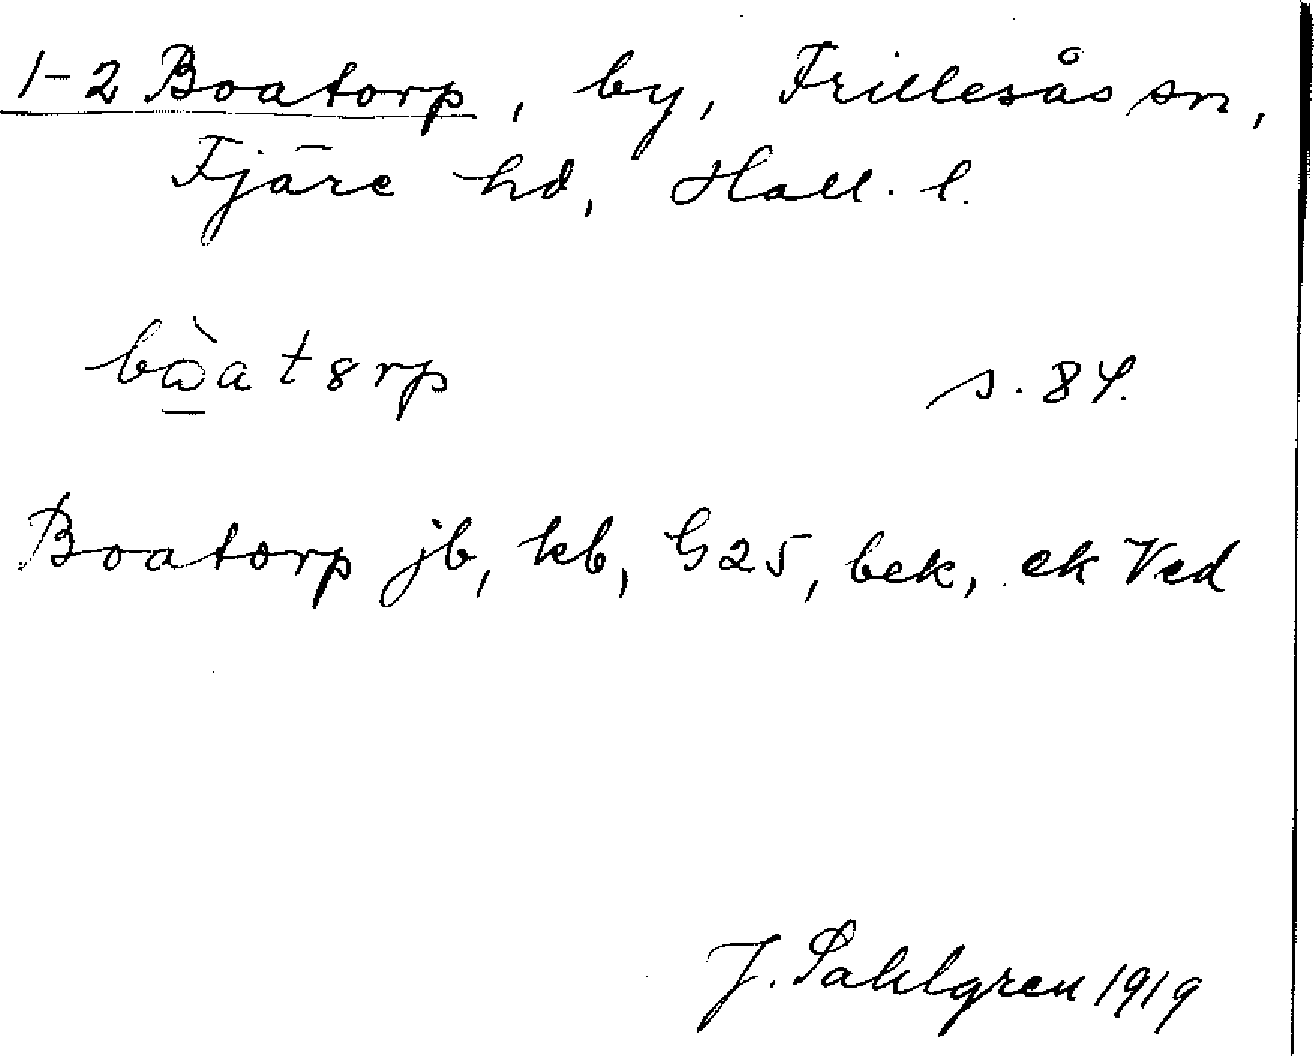 1-2 Boatorp, by, Frillesås sn,
Fjäre hd, Hall. l.
bὼ̲at8rp s. 84.
Boatorp jb, kb, G25, bek, ek Ved
J. Sahlgren 1919